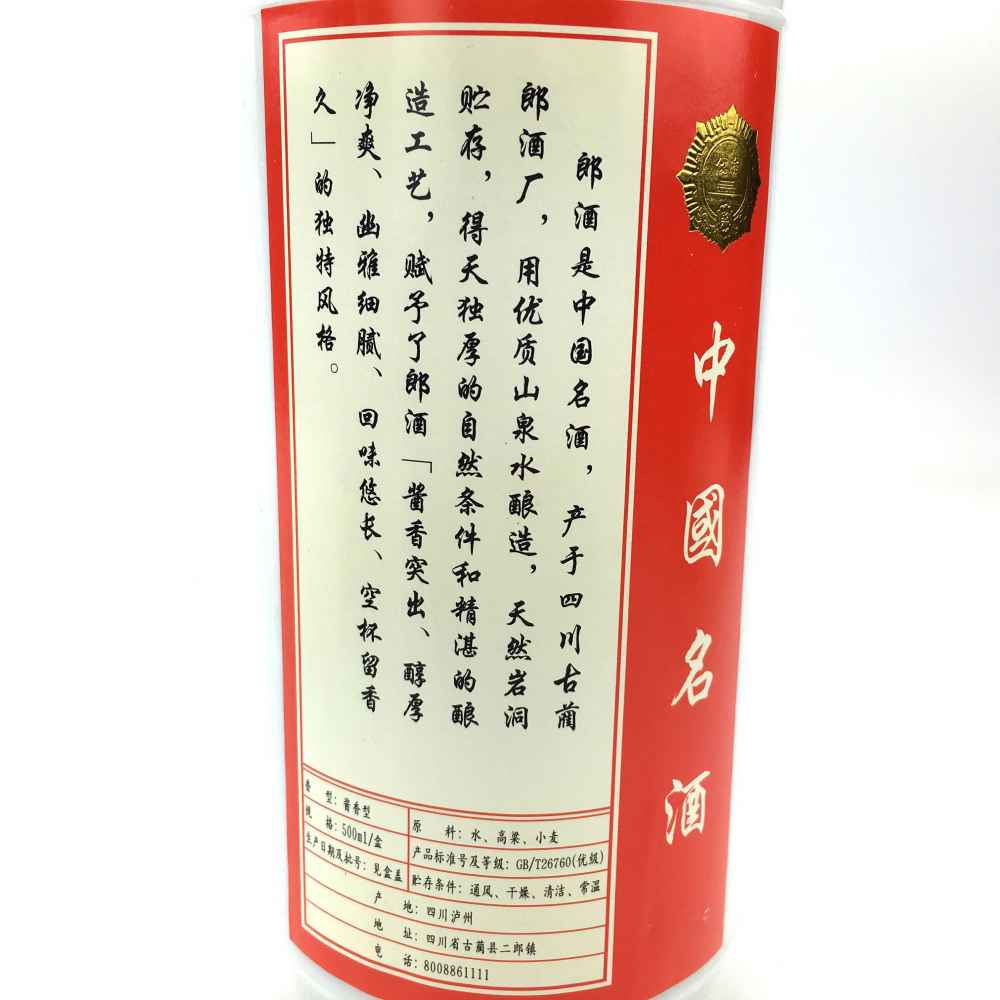 中國名酒
郎酒是中国名酒，产于四川古蔺
郎酒厂，用优质山泉水酿造，天然岩洞
贮存，得天独厚的自然条件和精湛的酿
造工艺，赋予了郎酒「酱香突出、醇厚
净爽、幽雅细腻、回味悠长、空杯留香
久」的独特风格。
香 型：酱香型
规 格：500ml/盒
生产日期及批号：见盒盖
原 料：水、高粱、小麦
产品标准号及等级：GB/T26760(优级)
贮存条件：通风、干燥、清洁、常温
产 地：四川泸州
地 址：四川省古蔺县二郎镇
电 话：8008861111